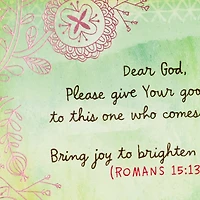 Dear God,
Please give Your goo
to this one who comes
Bring joy to brighten
(ROMANS 15:13